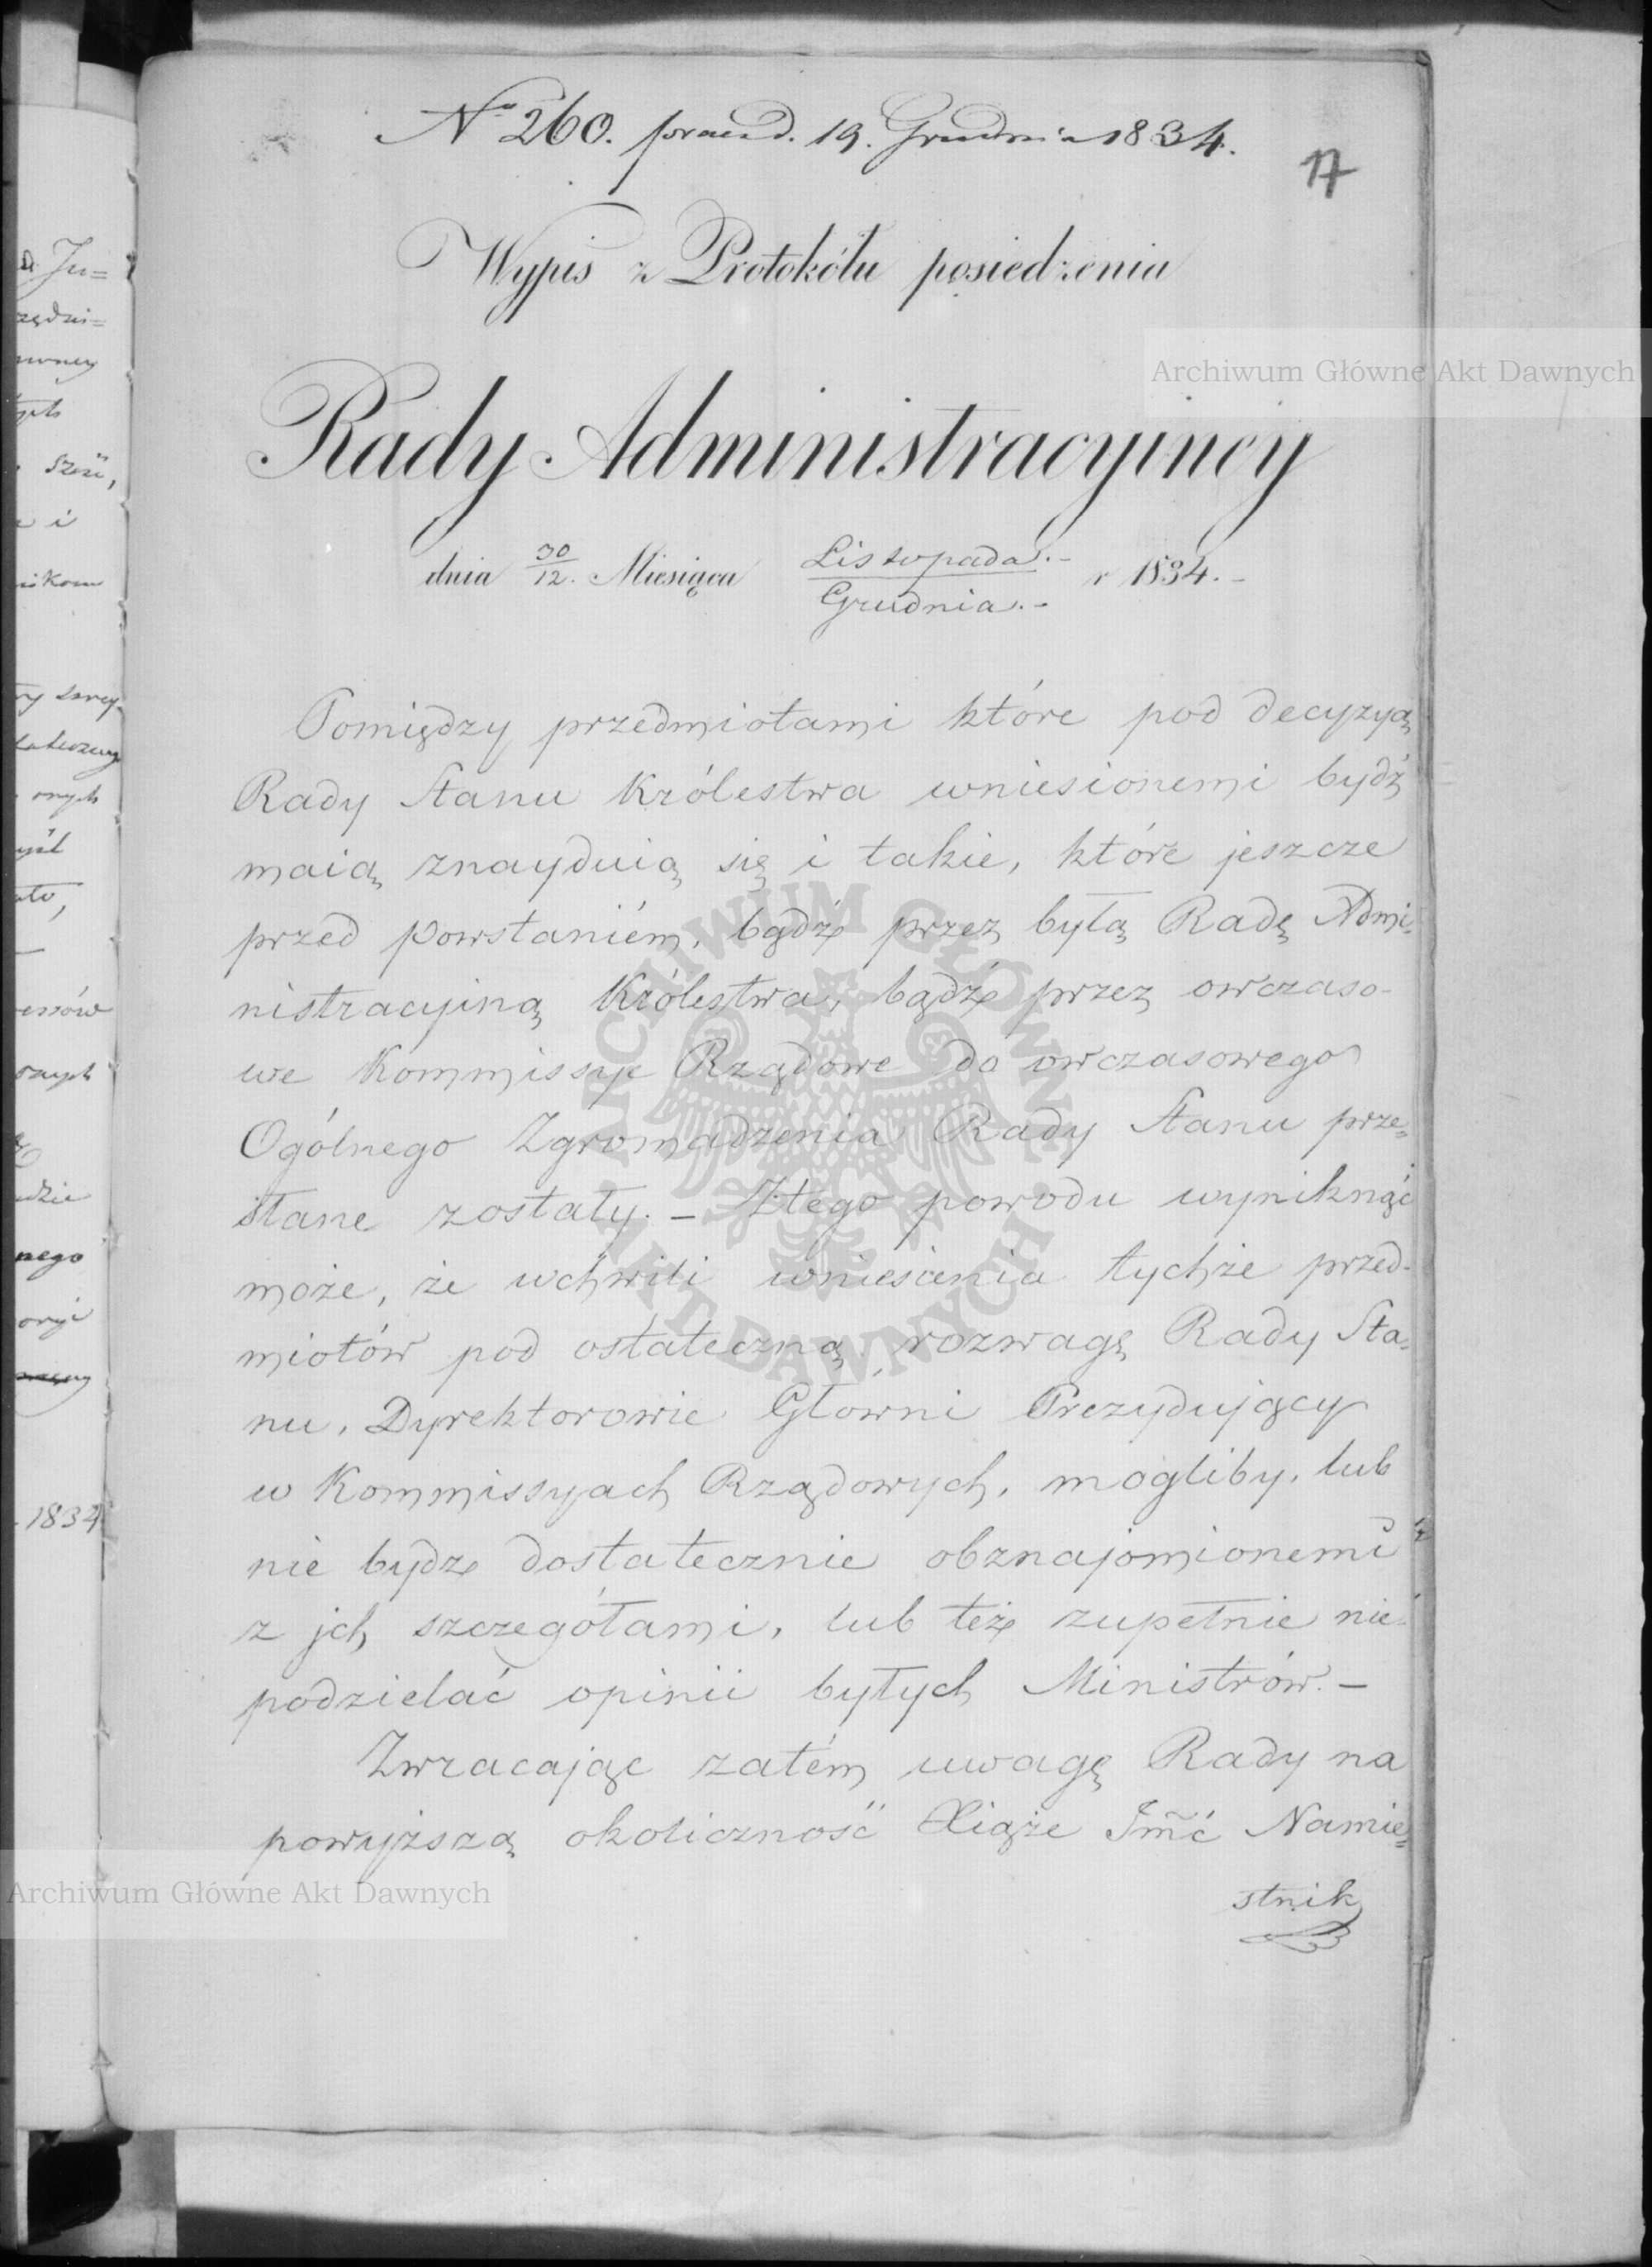 No 260. praes d. 19. Grudnia 1834.
17
Wypis z Protokółu posiedzenia
Archiwum Główne Akt Dawnych
Rady Administracyiney
dnia 30/12. Miesiąca Listopada.-/Grudnia.- r 1834.-
Pomiędzy przedmiotami które pod decyzyą
Rady Stanu Królestwa wniesionemi bydź
maią znayduią się i takie, które jeszcze
przed powstaniém, bądź przez byłą Radę Admi=
nistracyiną Królestwa, bądź przez owczaso-
we Kommissye Rządowe do owczasowego
Ogólnego Zgromadzenia Rady Stanu prze=
słane zostały. – Ztego powodu wyniknąć
może, że wchwili wniesienia tychże przed-
miotów pod ostateczną rozwagę Rady Sta-
nu, Dyrektorowie Główni Prezydujący
w Kommissyach Rządowych, mogliby, lub
nie bydź dostatecznie obznajomionemi
z jch szczegółami, lub też zupełnie nie-
podzielać opinii byłych Ministrów. –
Zwracając zatém uwagę Rady na
powyższą okoliczność Xiąże Jmć Namie=
stnik
Archiwum Główne Akt Dawnych
ARCHIWUM GŁÓWNE AKT DAWNYCH
Ju=
szeń,
i
nego
1834